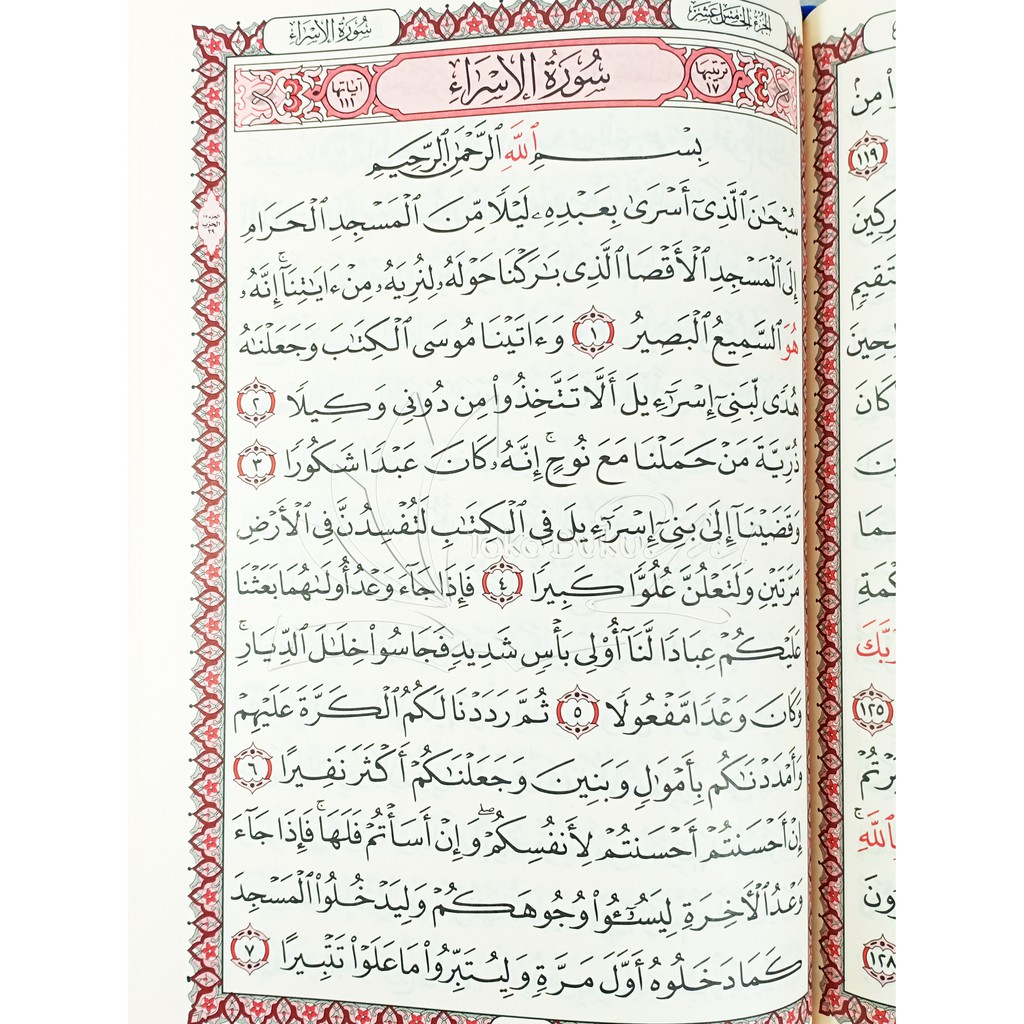 الجزء الخامس عشر
سُورَةُ الإِسْرَاءِ
ترتيبها ١٧
سُورَةُ الإِسْرَاءِ
آياتها ١١١
بِسْمِ ٱللَّهِ ٱلرَّحْمَٰنِ ٱلرَّحِيمِ
سُبْحَٰنَ ٱلَّذِىٓ أَسْرَىٰ بِعَبْدِهِۦ لَيْلًا مِّنَ ٱلْمَسْجِدِ ٱلْحَرَامِ
إِلَى ٱلْمَسْجِدِ ٱلْأَقْصَا ٱلَّذِى بَٰرَكْنَا حَوْلَهُۥ لِنُرِيَهُۥ مِنْ ءَايَٰتِنَآ ۚ إِنَّهُۥ
هُوَ ٱلسَّمِيعُ ٱلْبَصِيرُ ١ وَءَاتَيْنَا مُوسَى ٱلْكِتَٰبَ وَجَعَلْنَٰهُ
هُدًى لِّبَنِىٓ إِسْرَٰٓءِيلَ أَلَّا تَتَّخِذُوا۟ مِن دُونِى وَكِيلًا ٢
ذُرِّيَّةَ مَنْ حَمَلْنَا مَعَ نُوحٍ ۚ إِنَّهُۥ كَانَ عَبْدًا شَكُورًا ٣
وَقَضَيْنَآ إِلَىٰ بَنِىٓ إِسْرَٰٓءِيلَ فِى ٱلْكِتَٰبِ لَتُفْسِدُنَّ فِى ٱلْأَرْضِ
مَرَّتَيْنِ وَلَتَعْلُنَّ عُلُوًّا كَبِيرًا ٤ فَإِذَا جَآءَ وَعْدُ أُولَىٰهُمَا بَعَثْنَا
عَلَيْكُمْ عِبَادًا لَّنَآ أُو۟لِى بَأْسٍ شَدِيدٍ فَجَاسُوا۟ خِلَٰلَ ٱلدِّيَارِ ۚ
وَكَانَ وَعْدًا مَّفْعُولًا ٥ ثُمَّ رَدَدْنَا لَكُمُ ٱلْكَرَّةَ عَلَيْهِمْ
وَأَمْدَدْنَٰكُم بِأَمْوَٰلٍ وَبَنِينَ وَجَعَلْنَٰكُمْ أَكْثَرَ نَفِيرًا ٦
إِنْ أَحْسَنتُمْ أَحْسَنتُمْ لِأَنفُسِكُمْ ۖ وَإِنْ أَسَأْتُمْ فَلَهَا ۚ فَإِذَا جَآءَ
وَعْدُ ٱلْءَاخِرَةِ لِيَسُۥٓـُٔوا۟ وُجُوهَكُمْ وَلِيَدْخُلُوا۟ ٱلْمَسْجِدَ
كَمَا دَخَلُوهُ أَوَّلَ مَرَّةٍ وَلِيُتَبِّرُوا۟ مَا عَلَوْا۟ تَتْبِيرًا ٧
الجزء ١٥
الحزب
٢٩
١١٩
كَانَ
١٢٥
١٢٨
Toko Buku